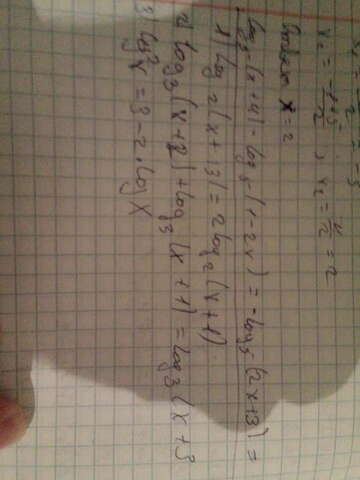 x₂ = , x₂ = 4/2 = 2
x = 2
log₅(x+4) - log₅(1-2x) = -log₅(2x+3) =
1) log₂(x+13) = 2log₂(x+1)
2) log₃(x+2) + log₃(x+1) = log₃(x+3
3) lg²x = 3-2·log x